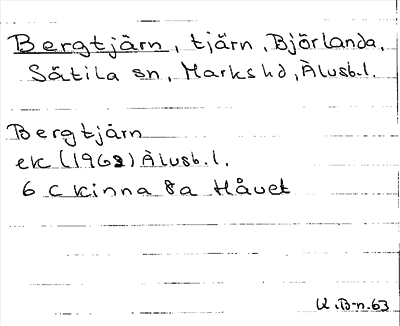 Bergtjärn, tjärn, Björlanda,
Sätila sn, Marks hd, Älvsb.l.
Bergtjärn
ek (1962) Älvsb.l.
6 C Kinna 8a Håvet
U.B-n.63